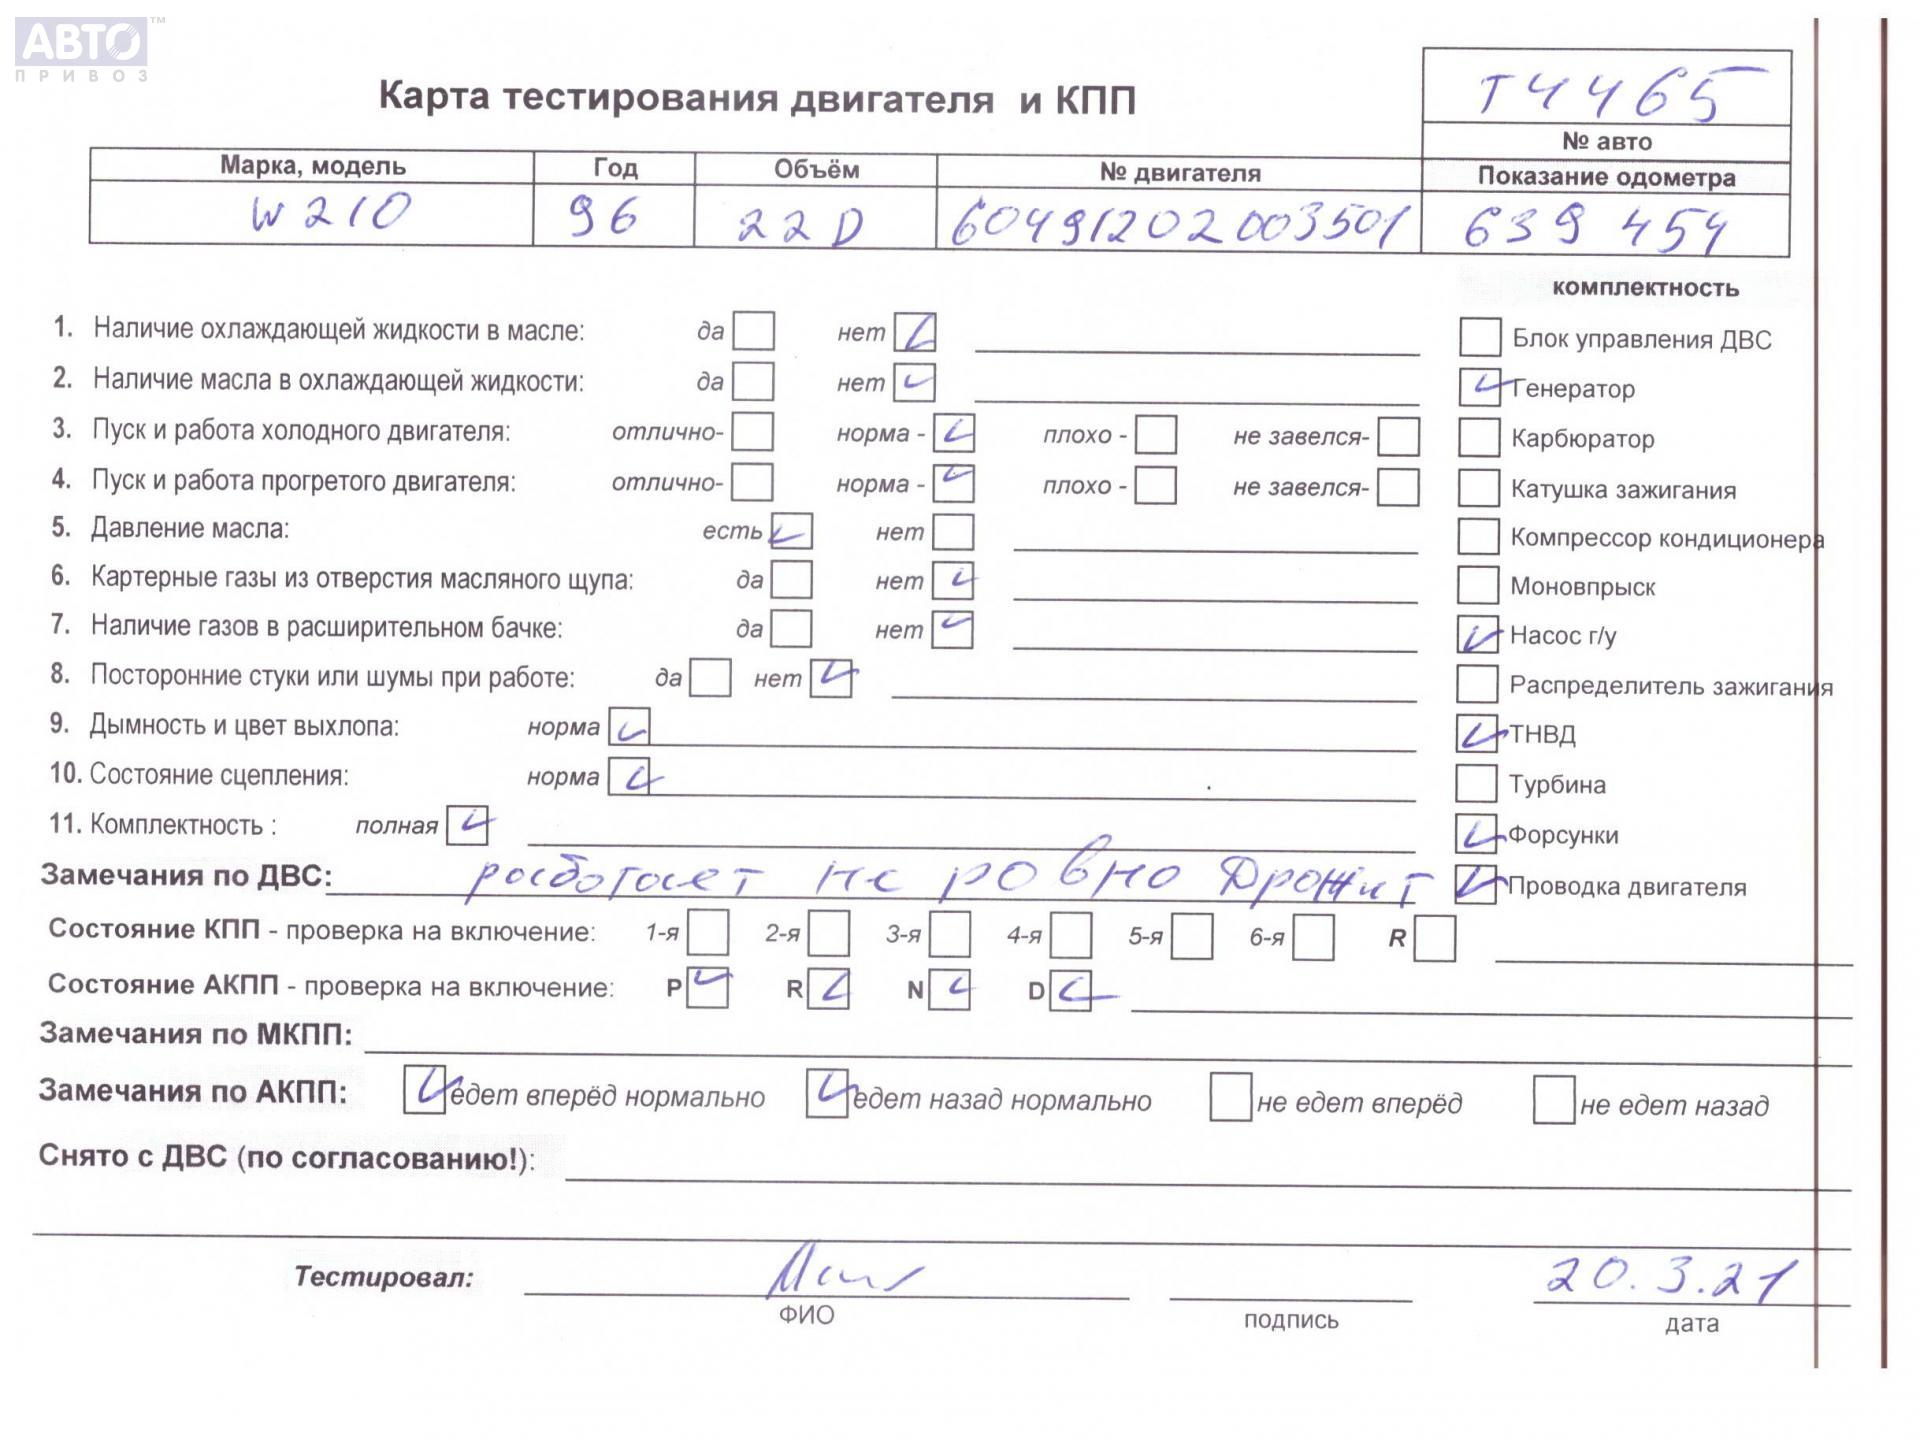 АВТО™
ПРИВОЗ
Карта тестирования двигателя и КПП
Т4465
№ авто
Марка, модель Год Объём № двигателя Показание одометра
W210 96 22D 60491202003501 639 454
комплектность
1. Наличие охлаждающей жидкости в масле: да нет Блок управления ДВС
2. Наличие масла в охлаждающей жидкости: да нет Генератор
3. Пуск и работа холодного двигателя: отлично- норма - плохо - не завелся- Карбюратор
4. Пуск и работа прогретого двигателя: отлично- норма - плохо - не завелся- Катушка зажигания
5. Давление масла: есть нет Компрессор кондиционера
6. Картерные газы из отверстия масляного щупа: да нет Моновпрыск
7. Наличие газов в расширительном бачке: да нет Насос г/у
8. Посторонние стуки или шумы при работе: да нет Распределитель зажигания
9. Дымность и цвет выхлопа: норма ТНВД
10. Состояние сцепления: норма Турбина
11. Комплектность : полная Форсунки
Замечания по ДВС: работает не ровно Дрожит Проводка двигателя
Состояние КПП - проверка на включение: 1-я 2-я 3-я 4-я 5-я 6-я R
Состояние АКПП - проверка на включение: P R N D
Замечания по МКПП:
Замечания по АКПП: едет вперёд нормально едет назад нормально не едет вперёд не едет назад
Снято с ДВС (по согласованию!):
Тестировал: 20.3.21
ФИО подпись дата